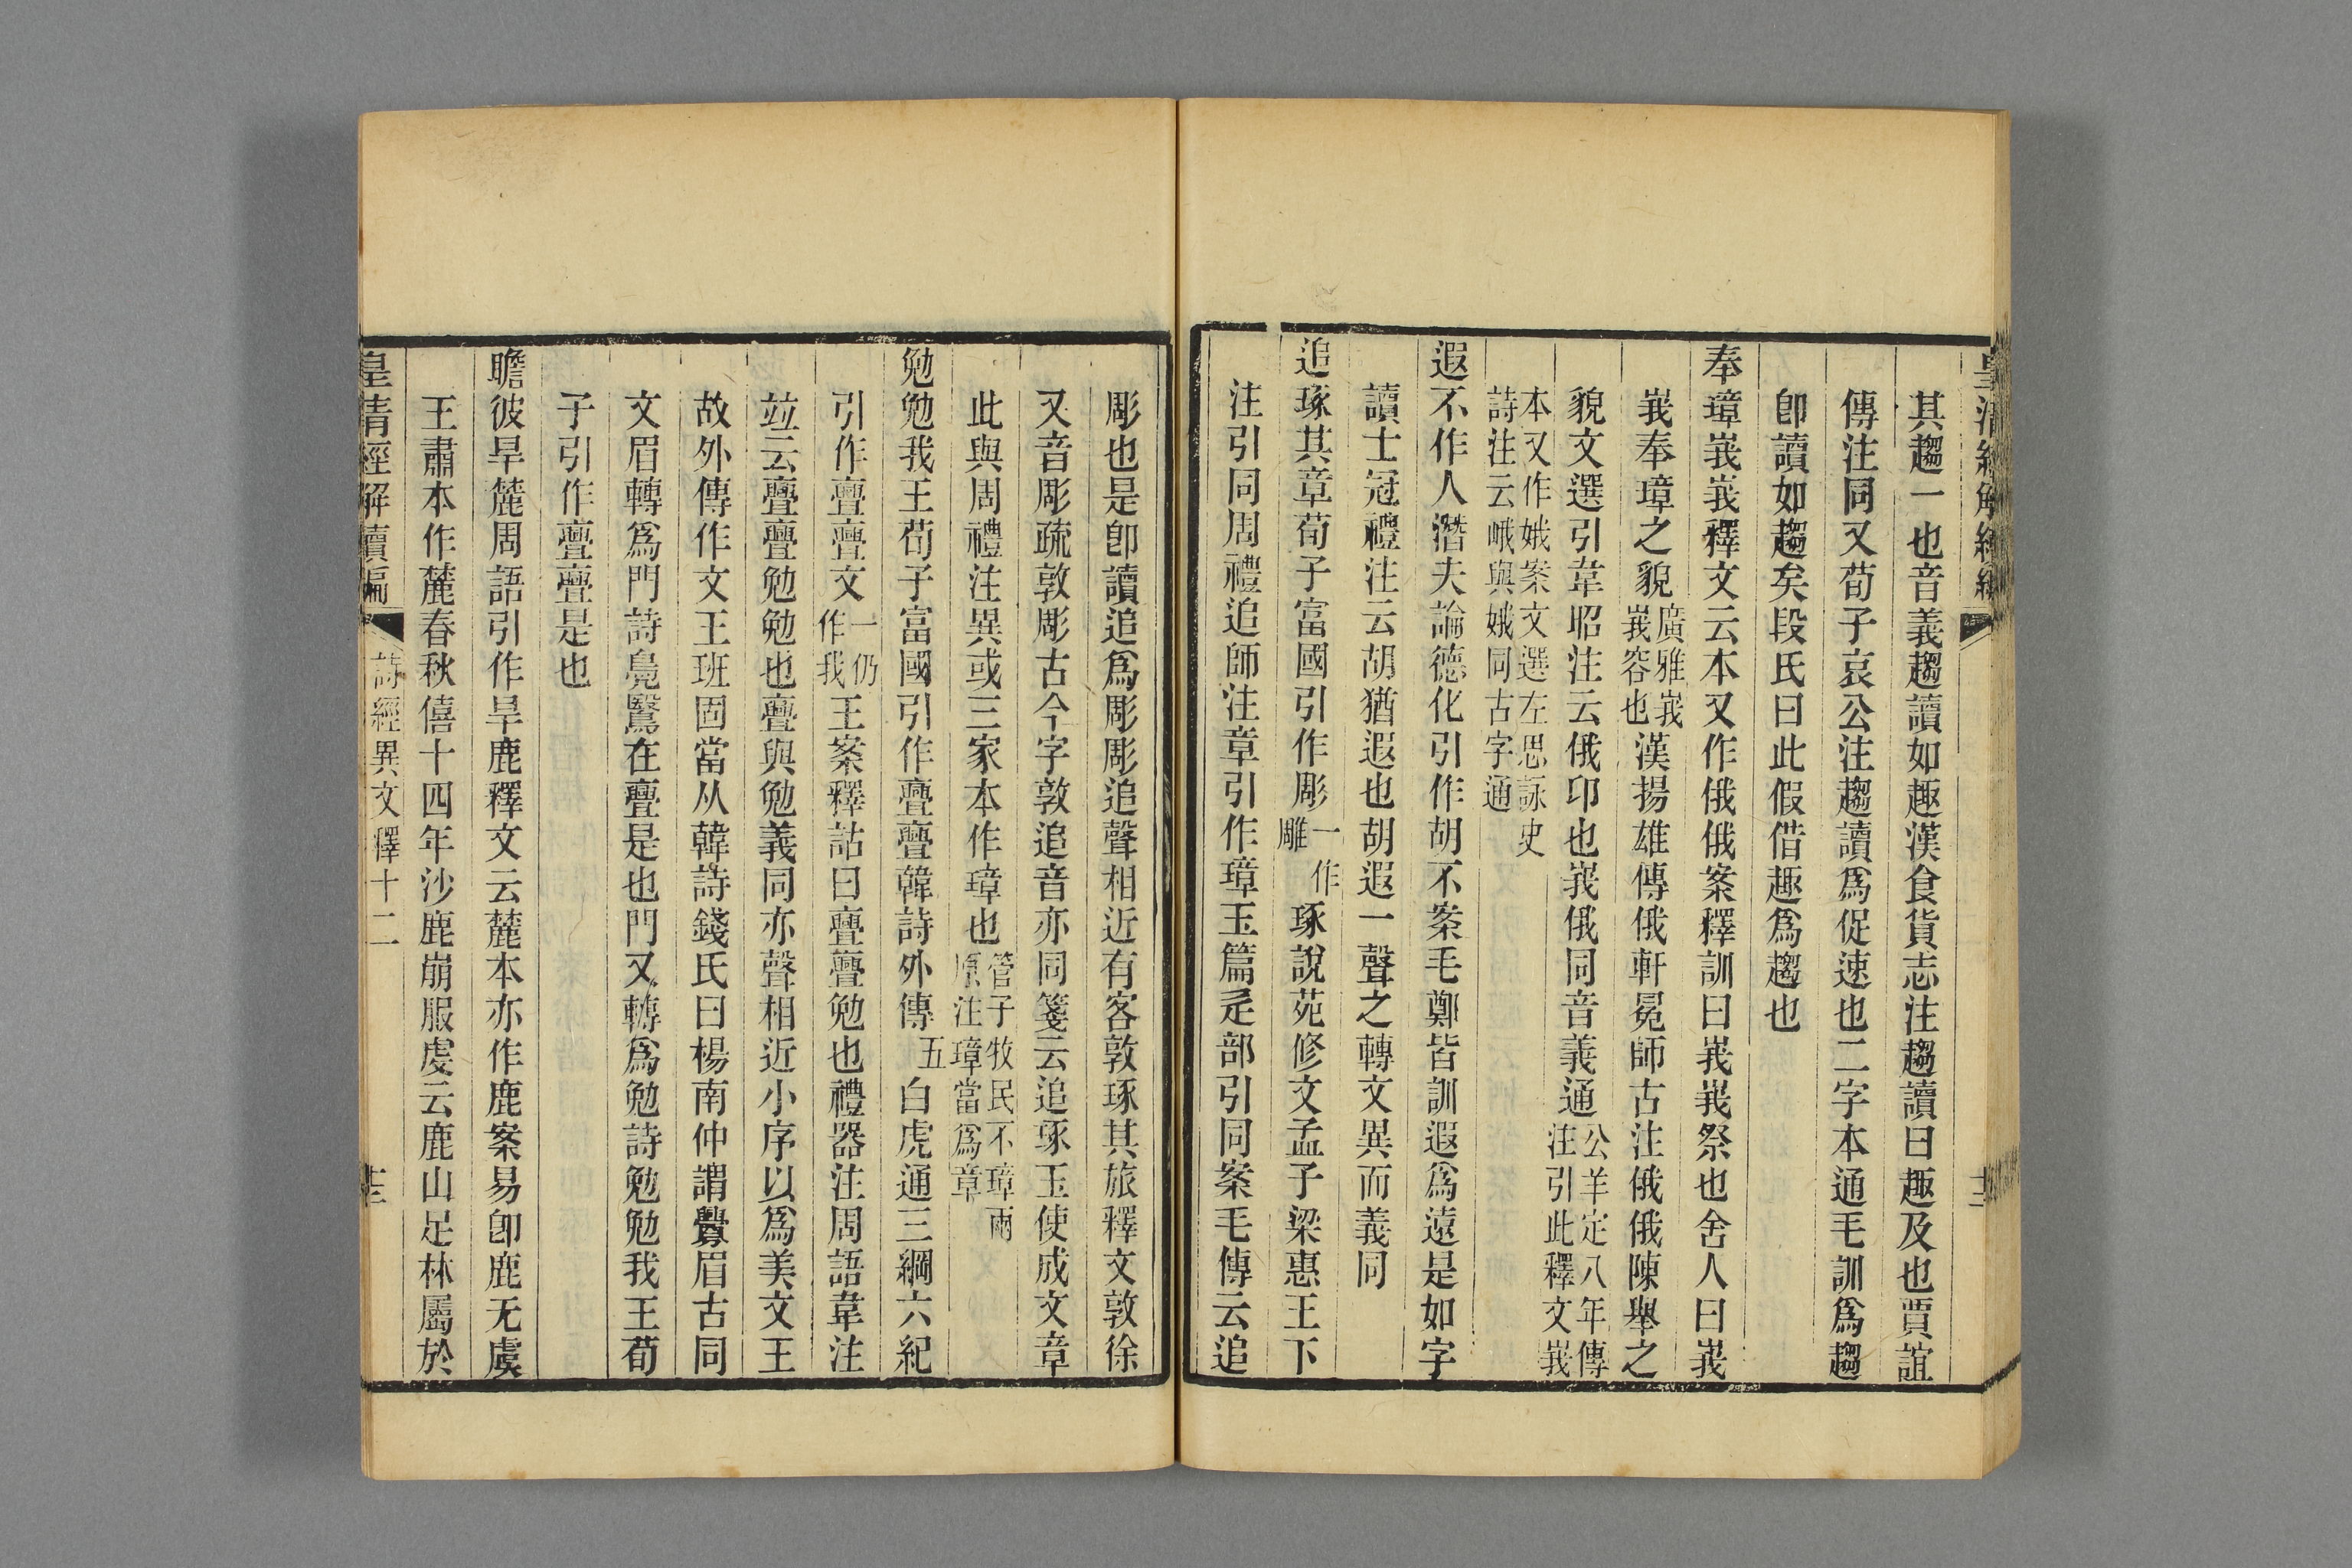 皇清經解續編
其趨一也音義趨讀如趣漢食貨志注趨讀曰趣及也賈誼
傳注同又荀子哀公注趨讀爲促速也二字本通毛訓爲趨
卽讀如趨矣段氏曰此假借趣爲趨也
奉璋峩峩釋文云本又作俄俄案釋訓曰峩峩祭也舍人曰峩
峩奉璋之貌廣雅峩峩容也漢揚雄傳俄軒冕師古注俄俄陳舉之
貌文選引韋昭注云俄卬也峩俄同音義通公羊定八年傳注引此釋文峩
本又作娥案文選左思詠史詩注云峨與娥同古字通
遐不作人潛夫論德化引作胡不案毛鄭皆訓遐爲遠是如字
讀士冠禮注云胡猶遐也胡遐一聲之轉文異而義同
追琢其章荀子富國引作彫一作雕琢說苑修文孟子梁惠王下
注引同周禮追師注章引作璋玉篇辵部引同案毛傳云追
彫也是卽讀追爲彫彫追聲相近有客敦琢其旅釋文敦徐
又音彫疏敦彫古今字敦追音亦同箋云追琢玉使成文章
此與周禮注異或三家本作璋也管子牧民不璋兩原注璋當爲章
勉勉我王荀子富國引作亹亹韓詩外傳五白虎通三綱六紀
引作亹亹文一仍作我王案釋詁曰亹亹勉也禮器注周語韋注
竝云亹亹勉勉也亹與勉義同亦聲相近小序以爲美文王
故外傳作文王班固當从韓詩錢氏曰楊南仲謂釁眉古同
文眉轉爲門詩鳧鷖在亹是也門又轉爲勉詩勉勉我王荀
子引作亹亹是也
瞻彼旱麓周語引作旱鹿釋文云麓本亦作鹿案易卽鹿无虞
王肅本作麓春秋僖十四年沙鹿崩服虔云鹿山足林屬於
皇清經解續編 詩經異文釋十二 十三